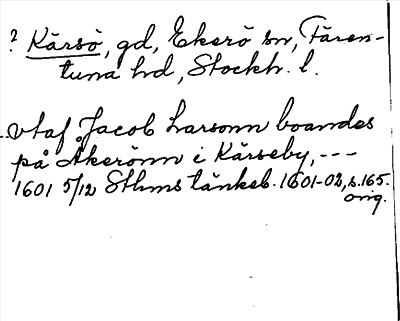 ? Kärsö, gd, Ekerö sn, Fären-
tuna hd, Stockh. l.
vtaf Jacob Larsonn boandes
på Åkerönn i Kärseby, ---
1601 5/12 Sthms tänkeb. 1601-02, s. 165.
orig.